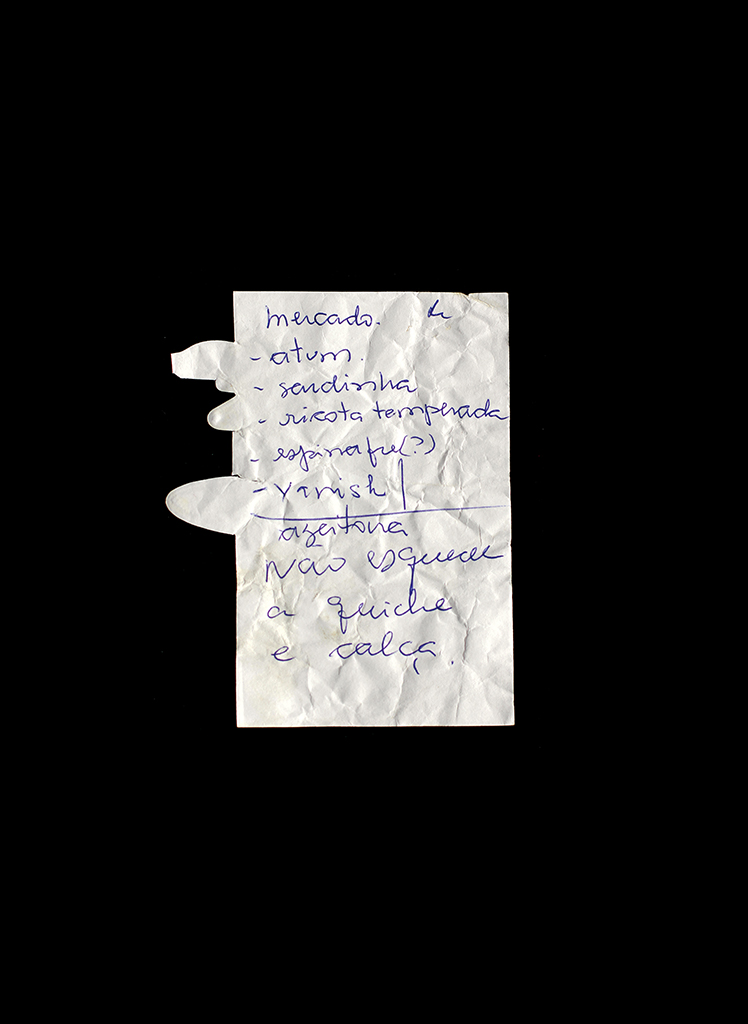 mercado.
- atum.
- sardinha
- ricota temperada
- espinafre(?)
- Vanish
azeitona
Não esquecer
a quiche
e calça.